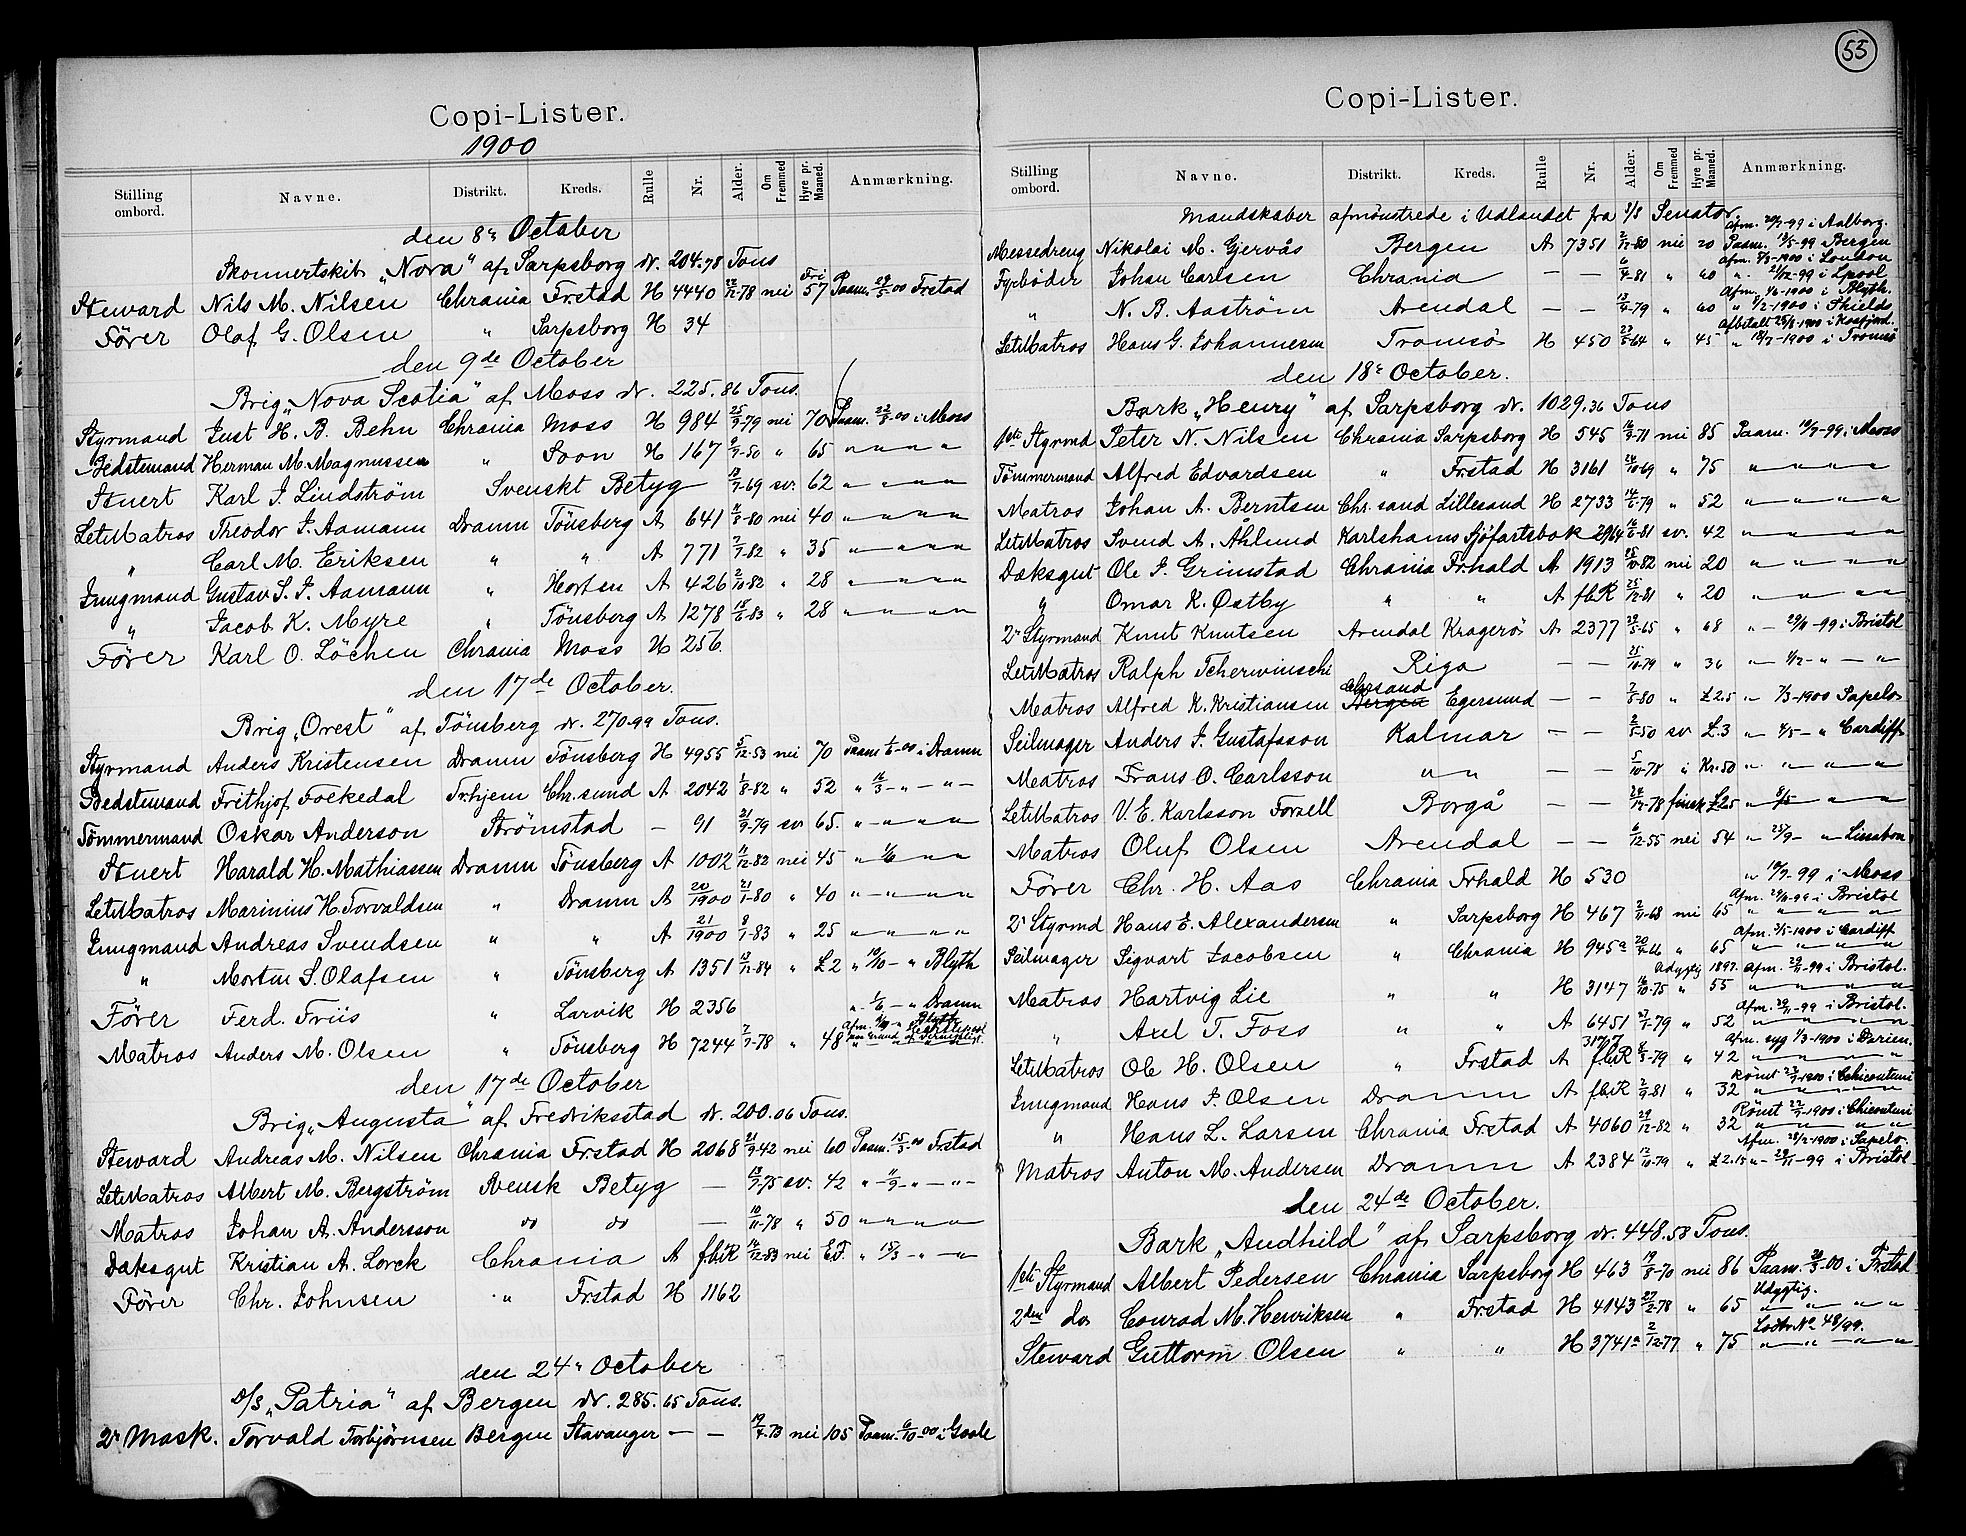 55
Copi-Lister.
1900
Stilling ombord. Navne. Distrikt. Kreds. Rulle Nr. Alder. Om Fremmed Hyre pr. Maaned. Anmærkning.
den 8de October
Skonnertskib „Nova“ af Sarpsborg dr. 204.78 Tons
Steward Nils M. Nilsen Chrania Frstad H 4440 22/12-78 nei Fri 57 Paam. 29/5-00 Frstad
Fører Olaf G. Olsen „ Sarpsborg H 34
den 9de October
Brig „Nova Scotia“ af Moss dr. 225.86 Tons.
Styrmand Just H. B. Behn Chrania Moss H 984 25/9-79 nei 70 Paam. 22/8-00 i Moss
Bedstemand Herman M. Magnussen „ Soon H 167 9/9-50 „ 65 „ „ „ „
Stuert Karl J. Lindström Svenskt Betyg 13/7-69 sv. 62 „ „ „ „
LetMatros Theodor J. Aamann Dramn Tönsberg A 641 11/8-80 nei 40 „ „ „ „
„ Carl M. Eriksen „ „ A 771 7/7-82 „ 35 „ „ „ „
Jungmand Gustav S. J. Aamann „ Horten A 426 2/10-82 „ 28 „ „ „ „
„ Jacob K. Myre „ Tönsberg A 1278 15/6-83 „ 28 „ „ „ „
Fører Karl O. Löchen Chrania Moss H 256.
den 17de October.
Brig „Orest“ af Tönsberg dr. 270.99 Tons.
Styrmand Anders Kristensen Dramn Tönsberg H 4955 5/12-53 nei 70 Paam 1/6-00 i Dramn
Bedstemand Frithjof Foekedal Trhjem Chr.sund A 2042 1/8-82 „ 52 „ 16/3 - „ - „ -
Tömmermand Oskar Anderson Strömstad - 91 21/9-79 sv 65. „ „ „ „
Stuert Harald H. Mathiassen Dramn Tönsberg A 1002 11/12-82 nei 45 „ 1/6 „ „
LetMatros Marinius H. Torvaldsen „ Dramn A 20/1900 21/1-80 „ 40 „ „ „ „
Jungmand Andreas Svendsen „ „ A 21/1900 8/1-83 „ 25 „ „ „ „
„ Morten S. Olafsen „ Tönsberg A 1351 13/12-84 „ £2 „ 10/10 - „ Blyth
Fører Ferd. Friis „ Larvik H 2356 „ 1/6 - „ Dramn
Matros Anders M. Olsen „ Tönsberg H 7244 7/7-78 „ 48
den 17de October
Brig „Augusta“ af Fredriksstad dr. 200.06 Tons.
Steward Andreas M. Nilsen Chrania Frstad H 2068 21/9-42 nei 60 Paam. 15/3-00 Frstad
LetMatros Albert M. Bergström Svensk Betyg - 13/7-75 sv. 42 „ 11/9 - „ - „ -
Matros Johan A. Andersson do do - 10/11-78 „ 50 „ „ „ „
Dæksgut Kristian A. Lorck Chrania A fbiR 14/12-83 nei E.F. „ 15/3 - „ - „
Fører Chr. Johnsen „ Frstad H 1162
den 24de October
D/S „Patria“ af Bergen dr. 285.65 Tons.
2n Mask. Torvald Torbjørnsen Bergen Stavanger - - 19/7-73 nei 105 Paam. 6/10-00 i Goole
Copi-Lister.
Stilling ombord. Navne. Distrikt. Kreds. Rulle Nr. Alder. Om Fremmed Hyre pr. Maaned. Anmærkning.
Mandskaber afmönstrede i Udlandet fra D/S Senator.
Afm. 20/7-99 i Aalborg.
Messedreng Nikolai M. Gjervås Bergen A 7351 2/12-80 nei 20 Paam. 12/5-99 i Bergen
Afm. 2/3-1900 i London
Fyrbøder Johan Carlsen Chrania - - 6/4-81 „ 60 „ 21/12-99 i Lpool
Afm. 1/6-1900 i Blyth.
„ N. B. Aaström Arendal - - 13/4-79 „ 60 „ 5/2-1900 i Shields
Afbetalt 25/8-1900 i Kaafjord.
LetMatros Hans G. Johannesen Tromsö H 450 23/5-64 „ 45 „ 18/7-1900 i Tromsö
den 18de October.
Bark „Henry“ af Sarpsborg dr. 1029.36 Tons
1ste Styrmd Peter N. Nilsen Chrania Sarpsborg H 545 16/9-71 nei 85 Paam. 19/7-99 i Moss
Tömmermand Alfred Edvardsen „ Frstad H 3161 24/10-69 „ 75 „ „ „ „
Matros Johan A. Berntsen Chr.sand Lillesand H 2733 14/6-79 „ 52 „ „ „ „
LetMatros Svend A. Åhlund Karlshams Sjöfartsbok 2964 16/6-81 sv. 42 „ „ „
Dæksgut Ole J. Grimstad Chrania Frhald A 1913 25/10-82 nei 20 „ „ „ „
„ Omar K. Østby „ „ A fbiR 25/12-81 „ 20 „ „ „ „
2n Styrmand Knut Knutsen Arendal Kragerö A 2377 29/5-65 „ 68 „ - 29/11-99 i Bristol
LetMatros Ralph Tcherwinschi Riga - - 25/10-79 „ 36 „ - 4/12 - „ - „
Matros Alfred K. Kristiansen Chrsand Egersund - - 7/8-80 „ £2.5 „ 7/3-1900 Sapelo
Seilmager Anders J. Gustafsson Kalmar - - 2/5-50 sv £.3 „ 4/5 - „ Cardiff
Matros Frans O. Carlsson „ „ - - 5/10-78 „ Kr.50 „ „ „ „
LetMatros V. E. Karlsson Forsell Borgå - - 24/12-78 finsk £2.5 „ 8/5 „ „
Matros Oluf Olsen Arendal - - 6/12-55 nei 54 „ 25/9 - „ Lissabon
Fører Chr. H. Aas Chrania Frhald H 530 „ 19/7-99 i Moss
Afm. 29/11-99 i Bristol
2n Styrmd Hans E. Alexandersen „ Sarpsborg H 467 2/11-68 nei 65 „ „ „ „
Afm. 3/5-1900 i Cardiff
Seilmager Sigvart Jacobsen „ Chrania H 945a 20/9-66 „ 65 „ „ „ „
Udygtig 1897. Afm. 29/11-99 i Bristol.
Matros Hartvig Lie „ „ H 3147 16/10-75 „ 55 „ „ „ „
Afm. 29/11-99 i Bristol.
„ Axel T. Foss „ „ A 6451 27/1-79 „ 52 „ „ „ „
Afm. syg 1/3-1900 i Darien.
LetMatros Ole H. Olsen „ Frstad A 3177 fbiR 8/3-79 „ 42 „ „ „ „
Römt 22/7-1900 i Chicoutimi
Jungmand Hans J. Olsen Dramn A fbiR 2/9-81 „ 32 „ „ „ „
Römt 22/7-1900 i Chicoutimi
„ Hans L. Larsen Chrania Frstad A 4060 29/12-82 „ 32 „ „ „ „
Afm. 28/2-1900 i Sapelo.
Matros Anton M. Andersen Dramn A 2384 12/10-79 „ £2.15 „ - 29/11-99 i Bristol
den 24de October.
Bark „Audhild“ af Sarpsborg dr. 448.58 Tons.
1ste Styrmand Albert Pedersen Chrania Sarpsborg H 463 19/8-70 nei 86 Paam. 20/3-00 i Frstad
Udygtig.
2den do Conrad M. Henriksen „ Frstad H 4143 27/2-78 „ 65 „ „ „ „
Lodbr. No 48/99.
Steward Guttorm Olsen „ „ H 3741a 2/12-77 „ 75 „ „ „ „